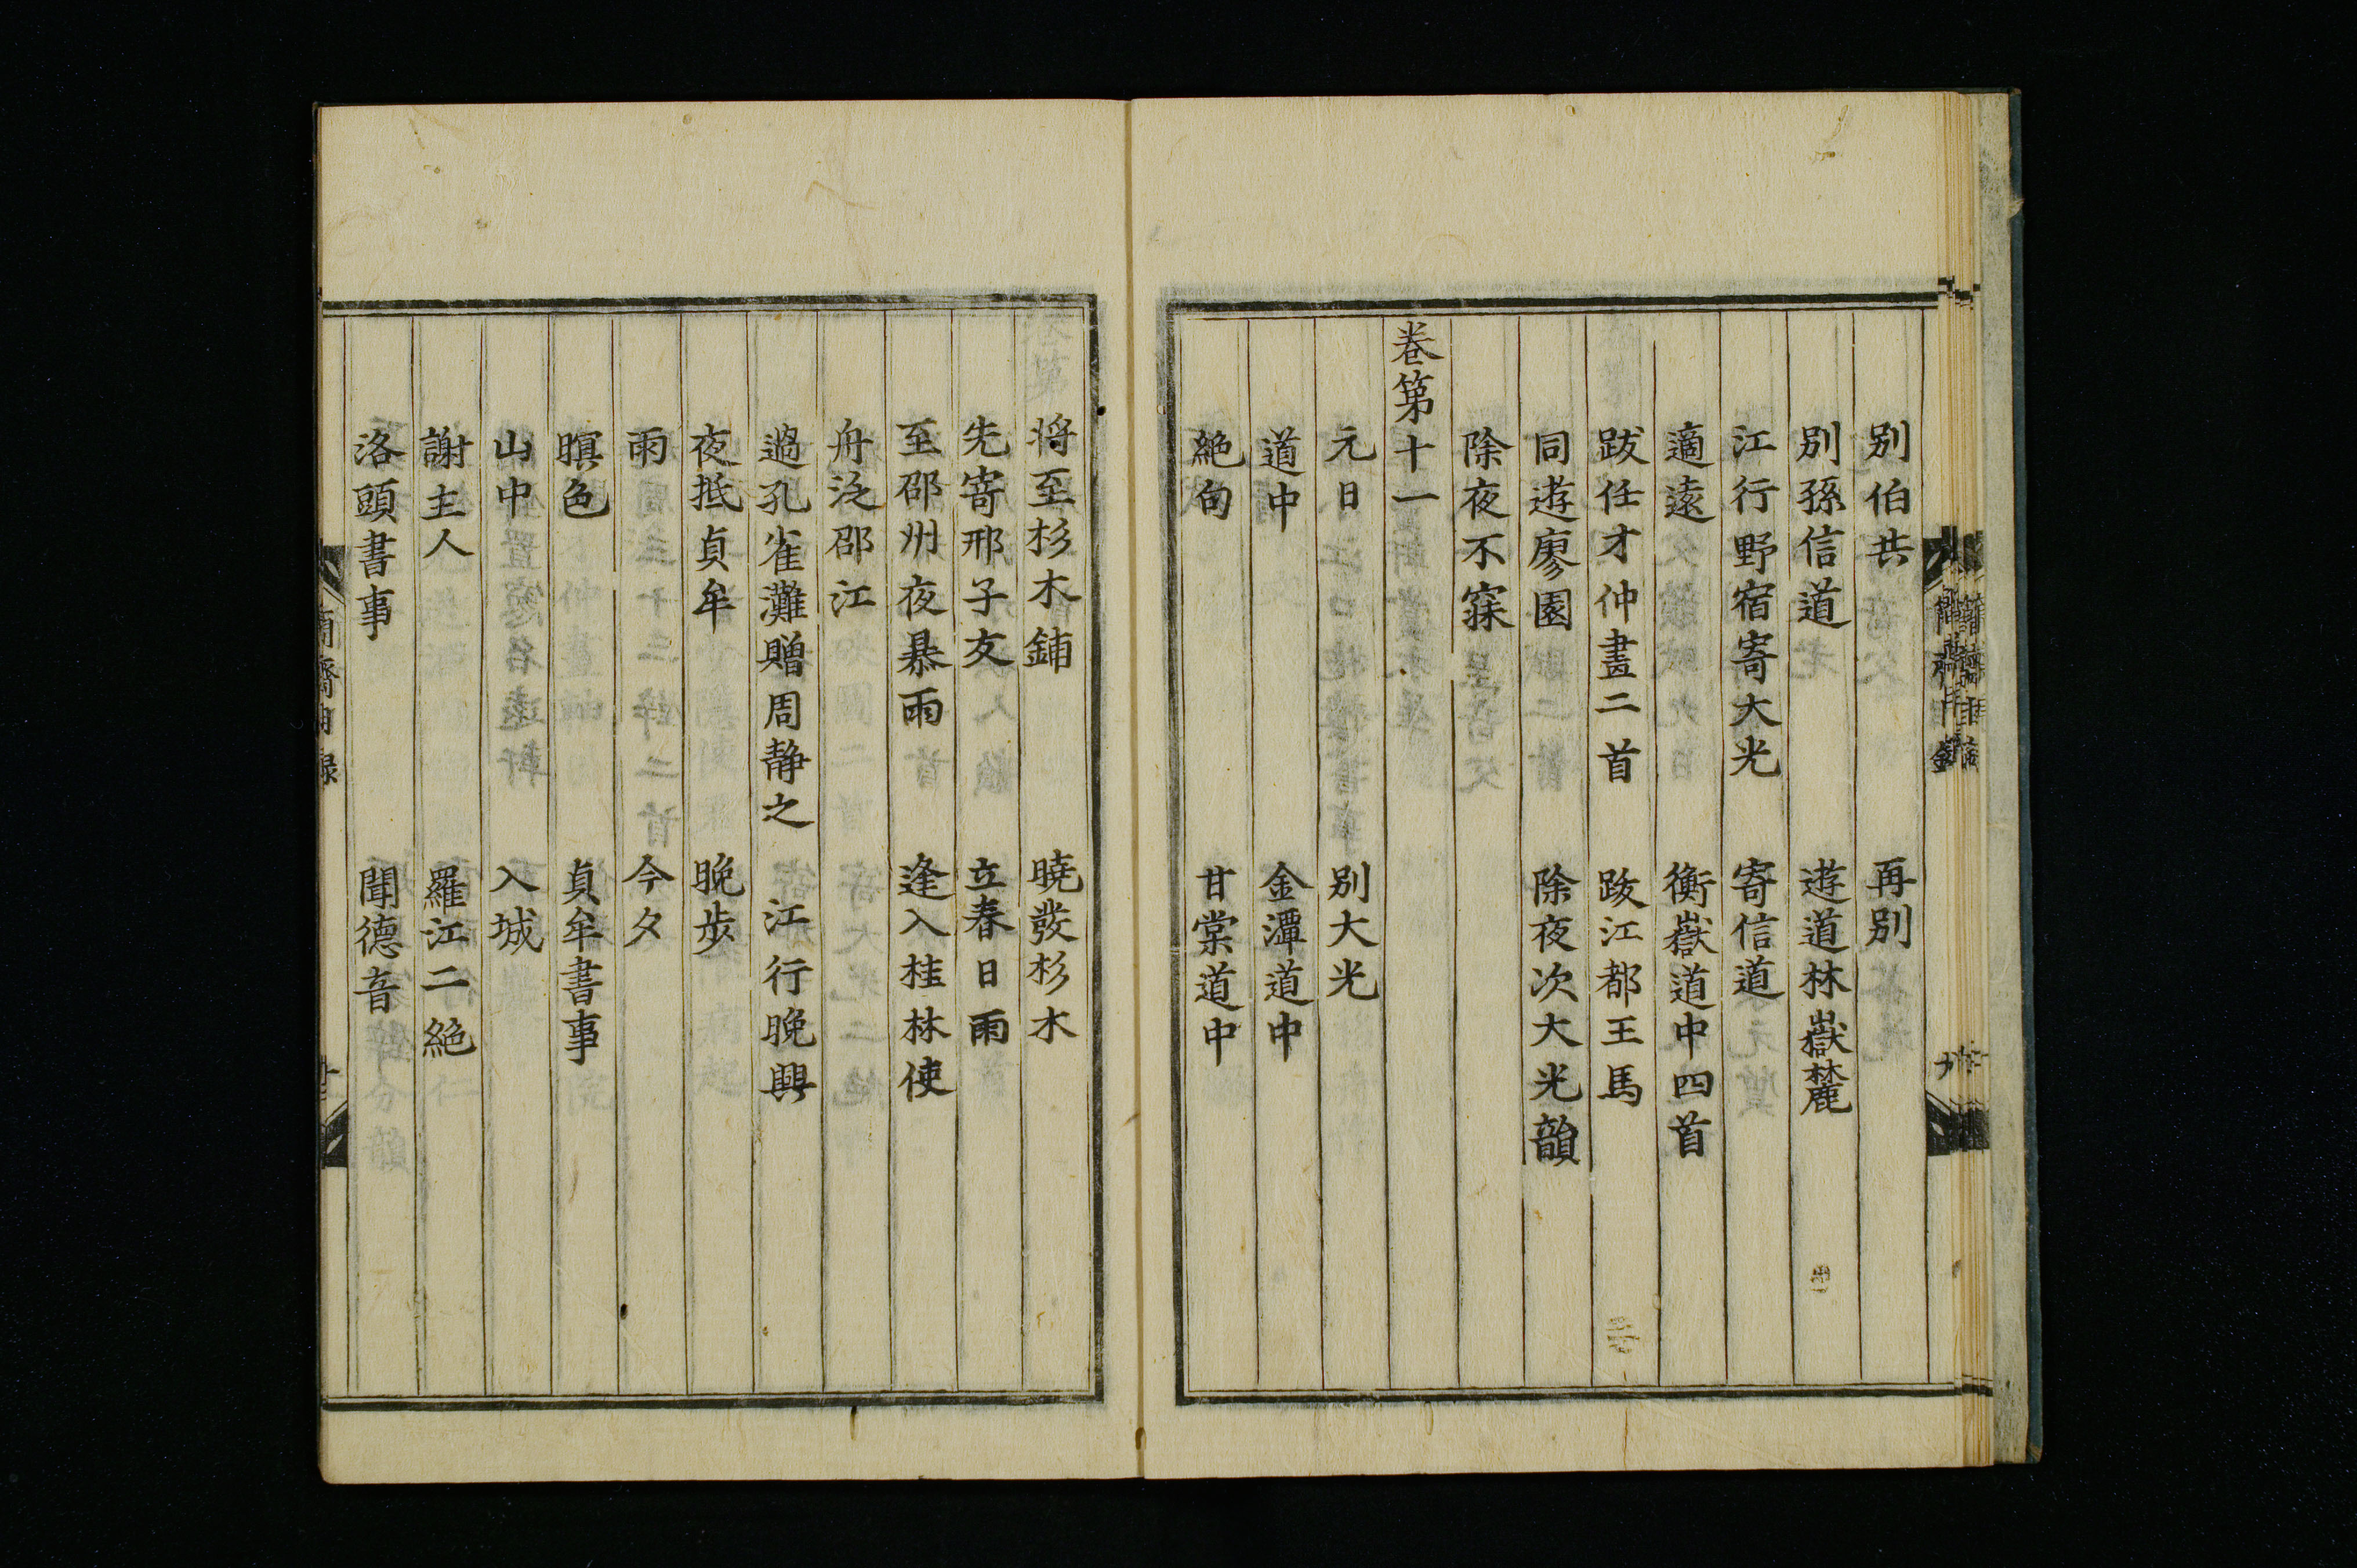 别伯共 再别
别孫信道 遊道林嶽麓
江行野宿寄大光 寄信道
適遠 衡嶽道中四首
跋任才仲畫二首 跋江都王馬
同遊廖園 除夜次大光韻
除夜不寐
卷第十一
元日 别大光
道中 金潭道中
絶句 甘棠道中
将至杉木鋪 曉發杉木
先寄邢子友 立春日雨
至邵州夜暴雨 逢入桂林使
舟泛邵江
過孔雀灘贈周静之 江行晚興
夜抵貞牟 晚步
雨 今夕
暝色 貞牟書事
山中 入城
謝主人 羅江二絶
洛頭書事 聞德音